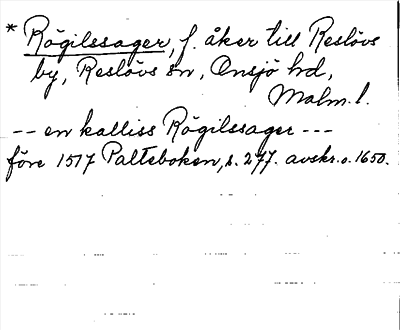 * Rögilssager, f. åker till Reslövs
by, Reslövs sn, Onsjö hd,
Malm.l.
-- en kalliss Rögilssager ---
före 1517 Palteboken, s. 277. avskr. o. 1650.